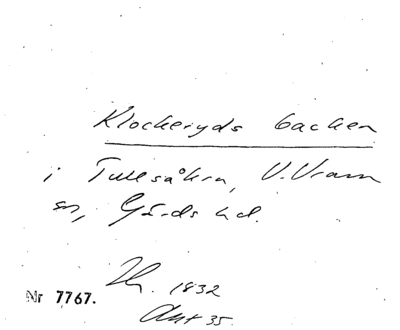 Klockeryds backen
i Tullsåkra, V. Vram
sn, Gärds hd.
1832
Akt 35.
Nr 7767.